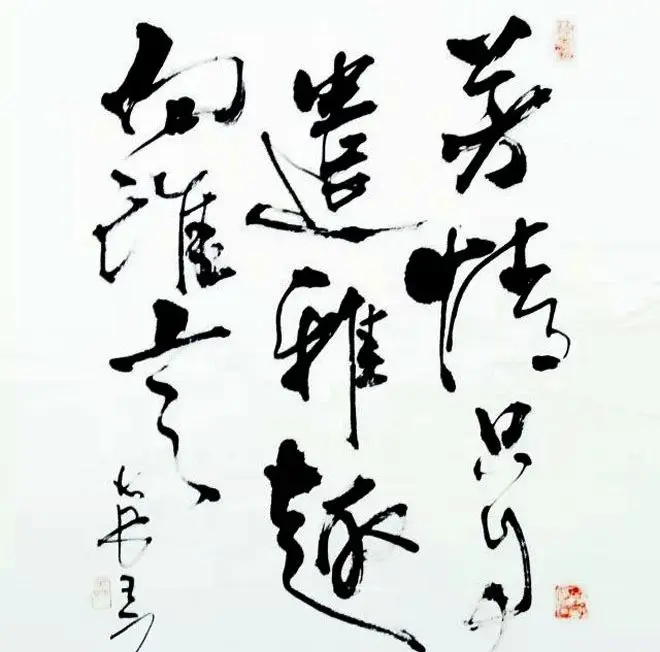 芳情只自
遣雅趣
向谁言